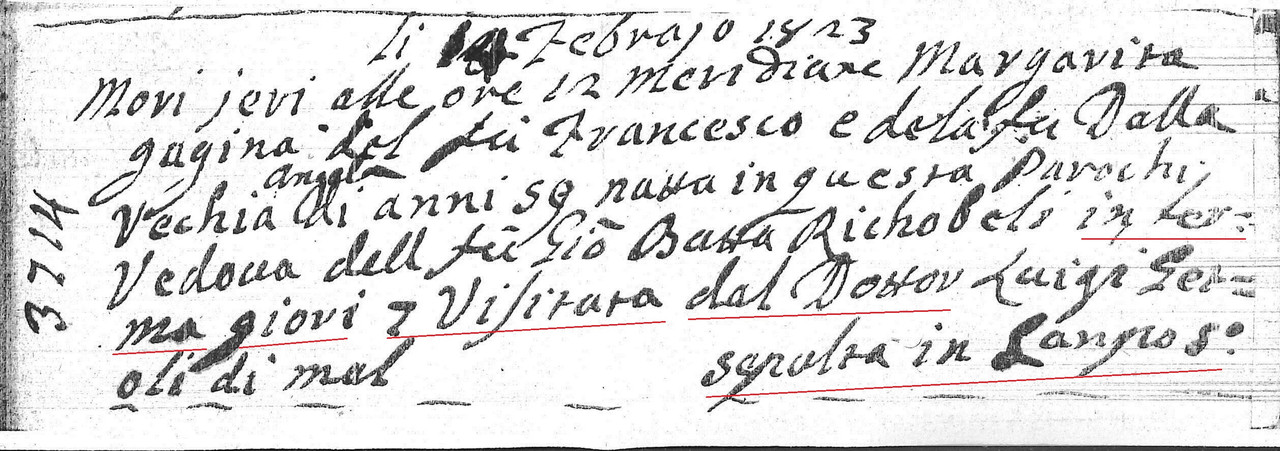 li Febrajo 1823
Mori jeri alle ore 12 meridiane Margarita
gagina del fù Francesco e dela fù Dalla
angela
Vechia di anni 59 natta in questa Parochi
Vedova dell fù Giō Batta Richobeli in fer=
ma giori 7 Visitata dal Dottor Luigi Ger=
oli di mal sepolta in Campo S:
3714